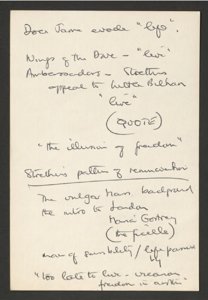 Does James evade "life".
Wings of the Dove - "live"
Ambassadors - Strether's
appeal to Little Bilham
"live"
(QUOTE)
"the illusion of freedom"
Strether's pattern of renunciation
The vulgar Mass. background
the intro to London
Maria Gostrey
(the ficelle)
man of sensibility / life passed
"too late to live - vicarious
freedom in